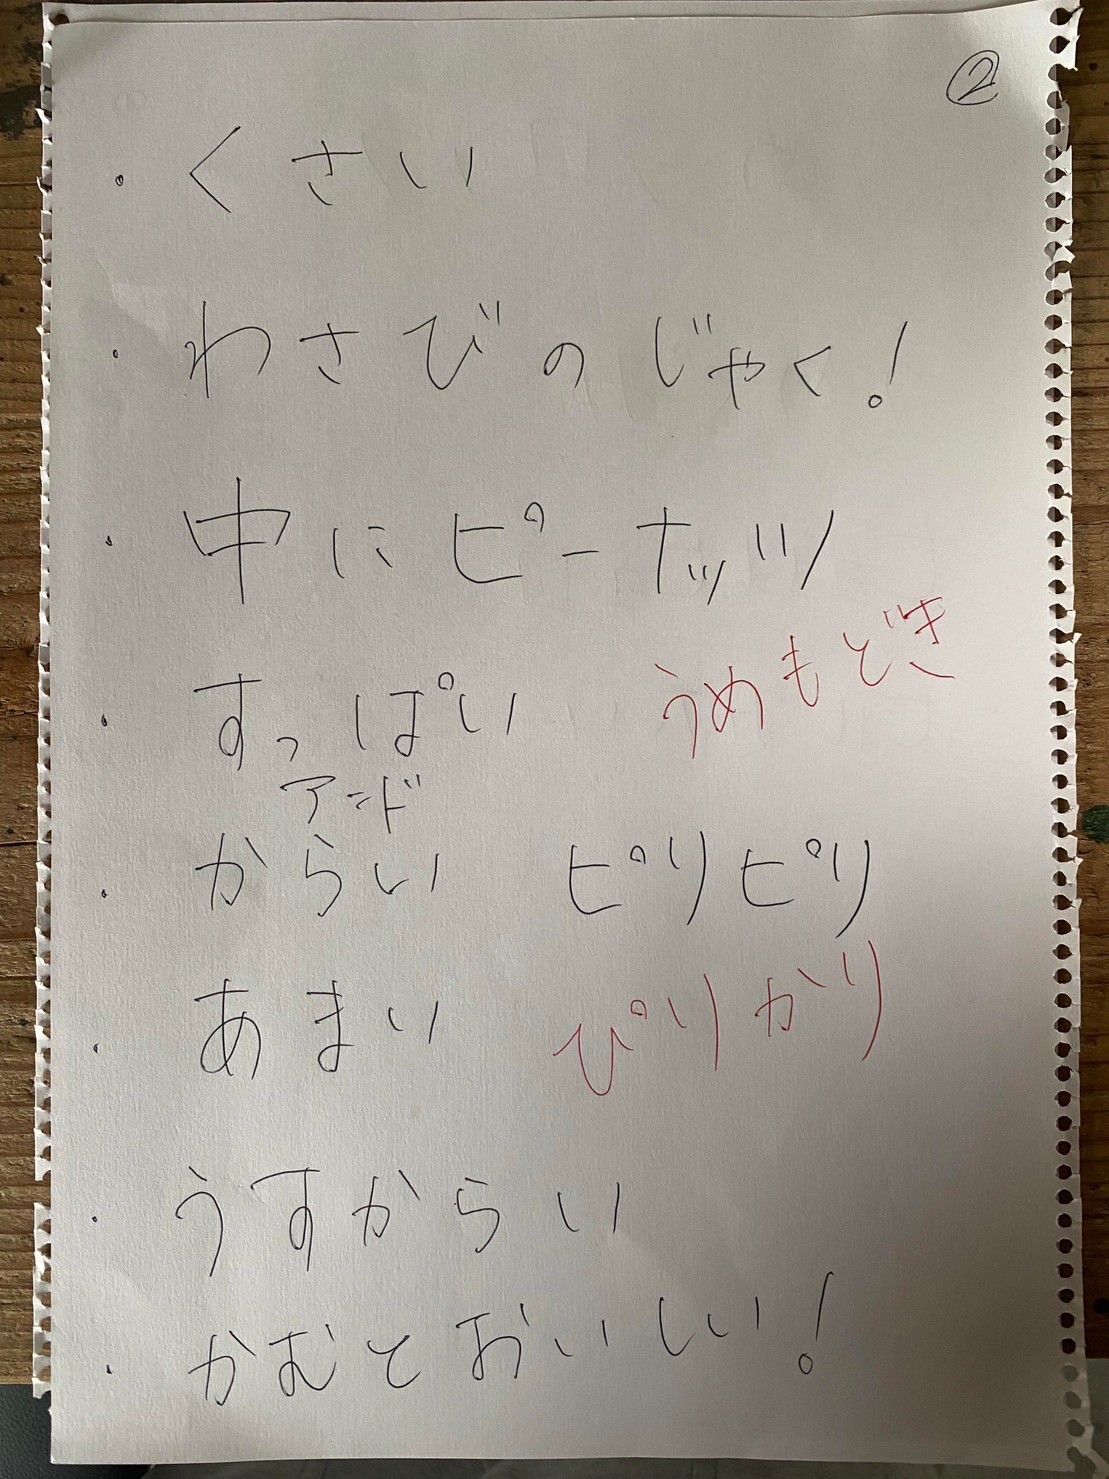 ②
・くさい
・わさびのじゃく!
・中にピーナッツ
・すっぱい うめもどき
アンド
・からい ピリピリ
・あまい ぴりかり
・うすからい
・かむとおいしい!